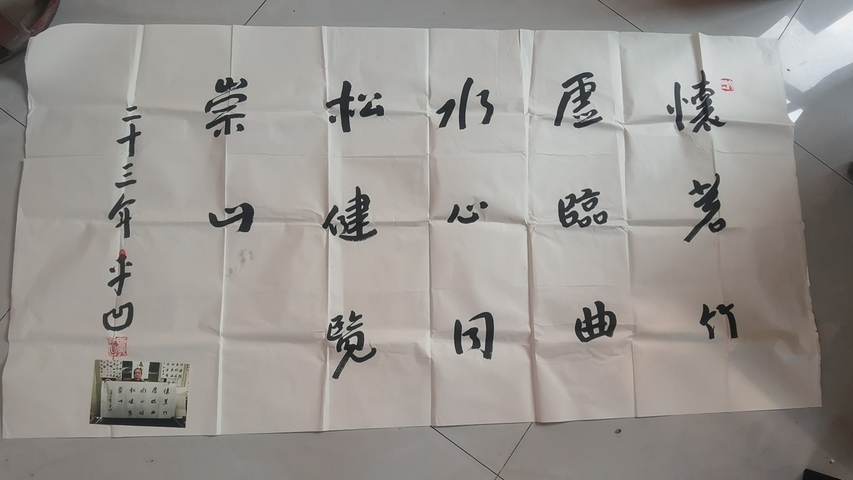 懷若竹
虛臨曲
水心同
松健覽
崇山
二十三年 平凹